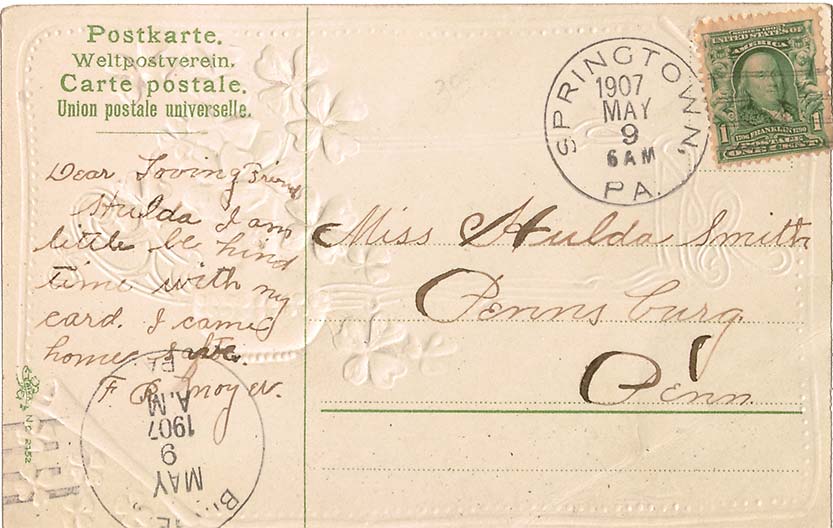 Postkarte.
Weltpostverein.
Carte postale.
Union postale universelle.
SPRINGTOWN,
1907
MAY
9
6 AM
PA.
UNITED STATES OF
AMERICA
1 FRANKLIN 1
POSTAGE
ONE CENT
Dear Loving Friend
Hulda I am
little be hind
time with my
card. I came
home safte.
F R moyer.
Miss Hulda Smith
Pennsburg
Penn
MAY
9
1907
A.M
PA
No 2152